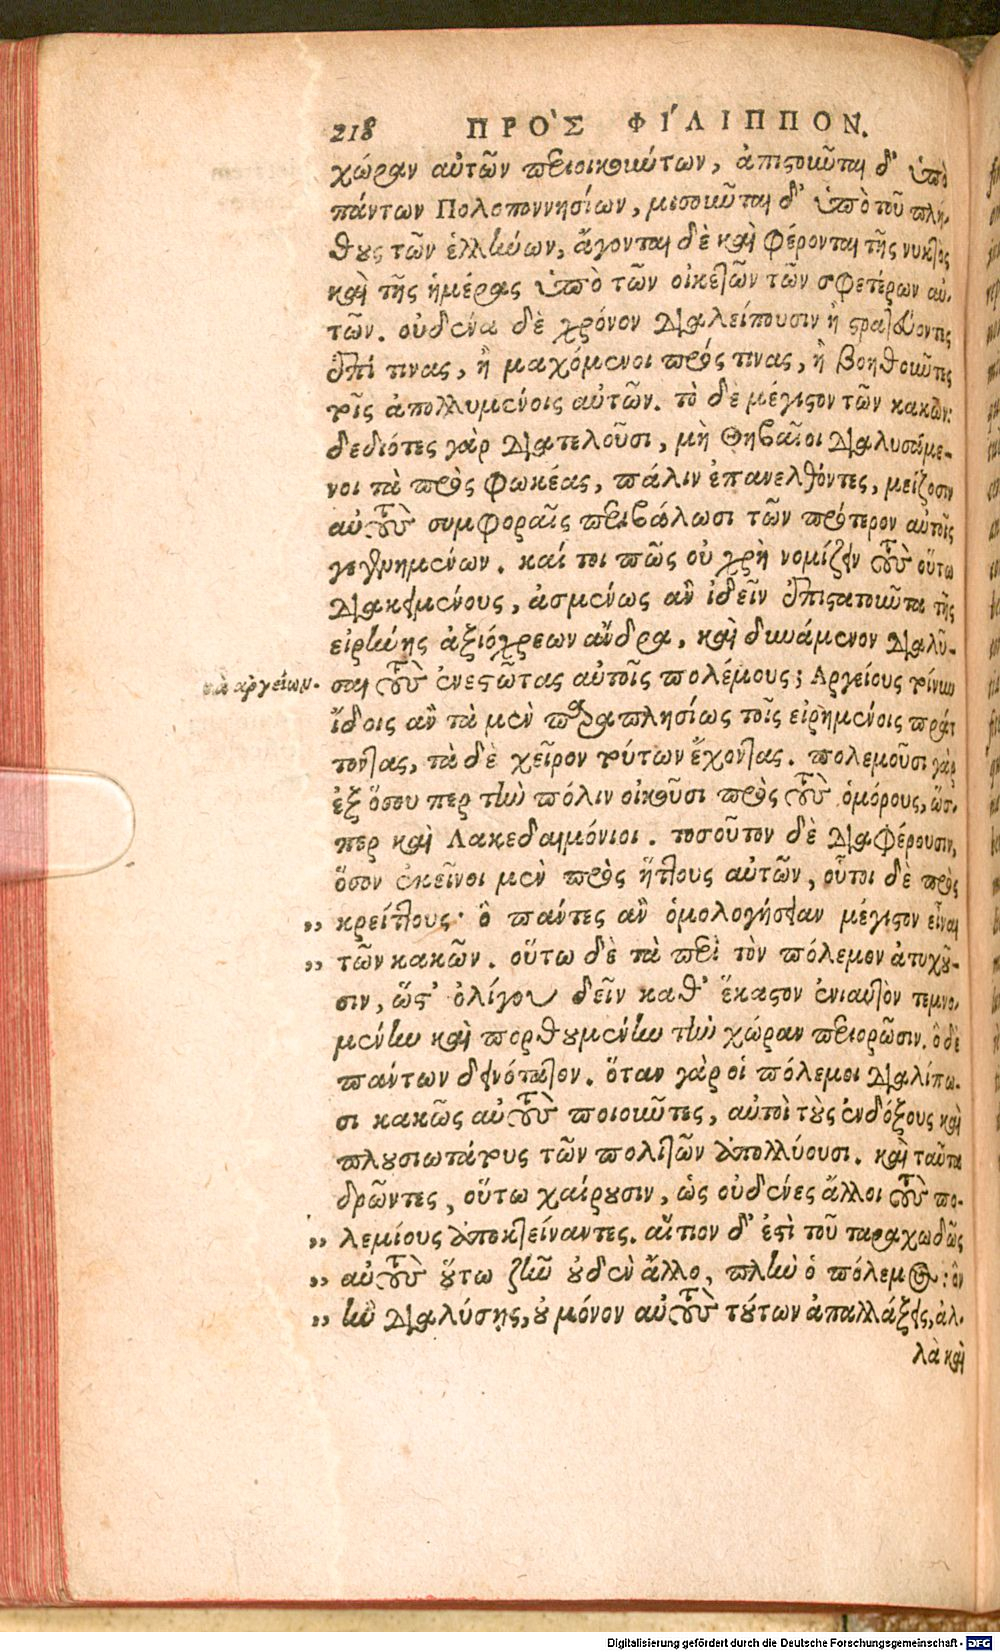 218 ΠΡΟ`Σ ΦΙ´ΛΙΠΠΟΝ.
χώραν αὐτῶν περιοικούντων, ἀπιστοῦνται δ' ὑπὸ
πάντων Πολοποννησίων, μισοῦνται δ' ὑπὸ τοῦ πλή-
θους τῶν ἑλλήνων, ἄγονται δὲ καὶ φέρονται τῆς νυκτὸς
καὶ τῆς ἡμέρας ὑπὸ τῶν οἰκετῶν τῶν σφετέρων αὐ-
τῶν. οὐδένα δὲ χρόνον διαλείπουσιν ἢ στρατεύοντες
ἐπί τινας, ἢ μαχόμενοι πρός τινας, ἢ βοηθοῦντες
τοῖς ἀπολλυμένοις αὐτῶν. τὸ δὲ μέγιστον τῶν κακῶν:
δεδιότες γὰρ διατελοῦσι, μὴ Θηβαῖοι διαλυσάμε-
νοι τὰ πρὸς Φωκέας, πάλιν ἐπανελθόντες, μείζοσιν
αὐτοὺς συμφοραῖς περιβάλωσι τῶν πρότερον αὐτοῖς
γεγενημένων. καί τοι πῶς οὐ χρὴ νομίζειν τοὺς οὕτω
διακειμένους, ἀσμένως ἂν ἰδεῖν ἐπιστατοῦντα τῆς
εἰρήνης ἀξιόχρεων ἄνδρα, καὶ δυνάμενον διαλῦ-
τὰ ἀργείων.
σαι τοὺς ἐνεστῶτας αὐτοῖς πολέμους; Αργείους τοίνυν
ἴδοις ἂν τὰ μὲν παραπλησίως τοῖς εἰρημένοις πράτ
τοντας, τὰ δὲ χεῖρον τούτων ἔχοντας. πολεμοῦσι γὰρ
ἐξ ὅσου περ τὴν πόλιν οἰκοῦσι πρὸς τοὺς ὁμόρους, ὥσ-
περ καὶ Λακεδαιμόνιοι. τοσοῦτον δὲ διαφέρουσιν,
ὅσον ἐκεῖνοι μὲν πρὸς ἥττους αὐτῶν, οὗτοι δὲ πρὸς
,, κρείττους· ὃ πάντες ἂν ὁμολογήσειαν μέγιστον εἶναι
,, τῶν κακῶν. οὕτω δὲ τὰ περὶ τὸν πόλεμον ἀτυχοῦ-
σιν, ὥστ' ὀλίγου δεῖν καθ' ἕκαστον ἐνιαυτὸν τεμνο-
μένην καὶ πορθουμένην τὴν χώραν περιορῶσιν. ὃ δὲ
πάντων δεινότατον. ὅταν γὰρ οἱ πόλεμοι διαλίπω-
σι κακῶς αὐτοὺς ποιοῦντες, αὐτοὶ τοὺς ἐνδόξους καὶ
πλουσιωτάτους τῶν πολιτῶν ἀπολλύουσι. καὶ ταῦτα
δρῶντες, οὕτω χαίρουσιν, ὡς οὐδένες ἄλλοι τοὺς πο-
,, λεμίους ἀποκτείναντες. αἴτιον δ' ἐστὶ τοῦ ταραχωδῶς
,, αὐτοὺς οὕτω ζῆν οὐδὲν ἄλλο, πλὴν ὁ πόλεμος: ὃν
,, ἢν διαλύσῃς, οὐ μόνον αὐτοὺς τούτων ἀπαλλάξεις, ἀλ-
λὰ καὶ
Digitalisierung gefördert durch die Deutsche Forschungsgemeinschaft - DFG